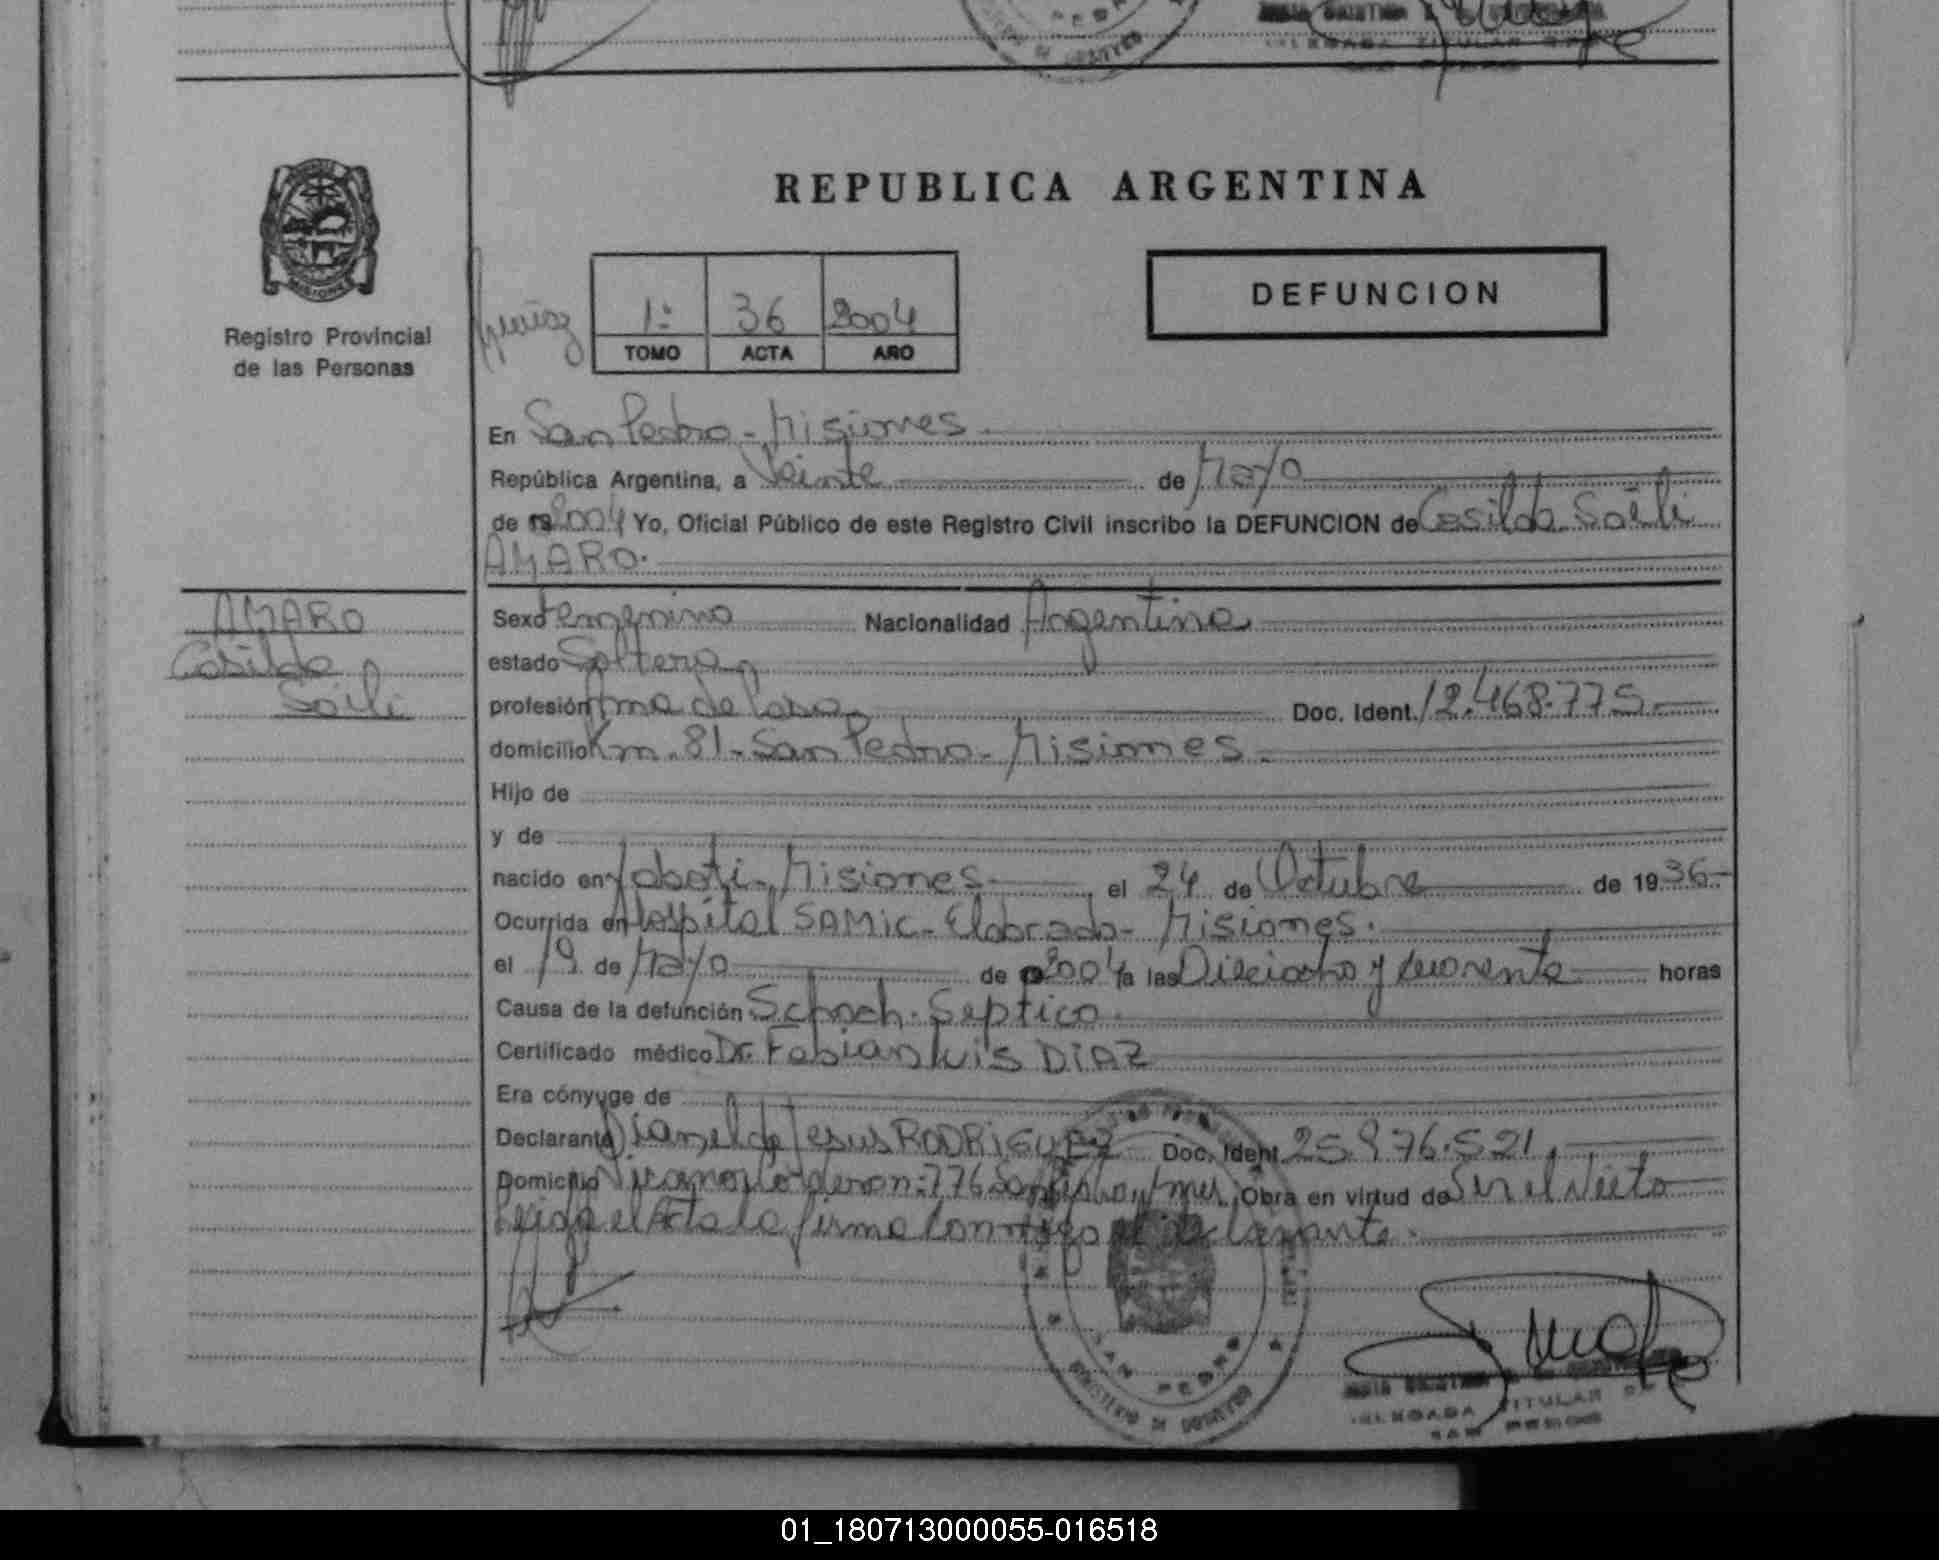 REPUBLICA ARGENTINA
MISIONES
Registro Provincial
de las Personas
1º 36 2004
TOMO ACTA AÑO
DEFUNCION
En San Pedro - Misiones
República Argentina, a Veinte de Mayo
de 2004 Yo, Oficial Público de este Registro Civil inscribo la DEFUNCION de Casilda Saili
AMARO.
AMARO
Casilda
Saili
Sexo Femenino Nacionalidad Argentina
estado Soltera
profesión Ama de Casa Doc. Ident. 12.468.775.-
domicilio Km. 81 - San Pedro - Misiones
Hijo de
y de
nacido en Yaboti - Misiones el 24 de Octubre de 1936-
Ocurrida en Hospital SAMIC - Eldorado - Misiones.
el 19 de Mayo de 2004 a las Dieciocho y cuarenta horas
Causa de la defunción Schoch. Septico.
Certificado médico Dr. Fabian Luis DIAZ
Era cónyuge de
Declarante Jesus RODRIGUEZ Doc. Ident. 25.976.521.
Domicilio nº 776 San Pedro Obra en virtud de Ser el Nieto
Leida el Acta la firma conmigo el declarante.
SAN PEDRO
MINISTERIO DE GOBIERNO
DELEGADA TITULAR
SAN PEDRO
01_180713000055-016518